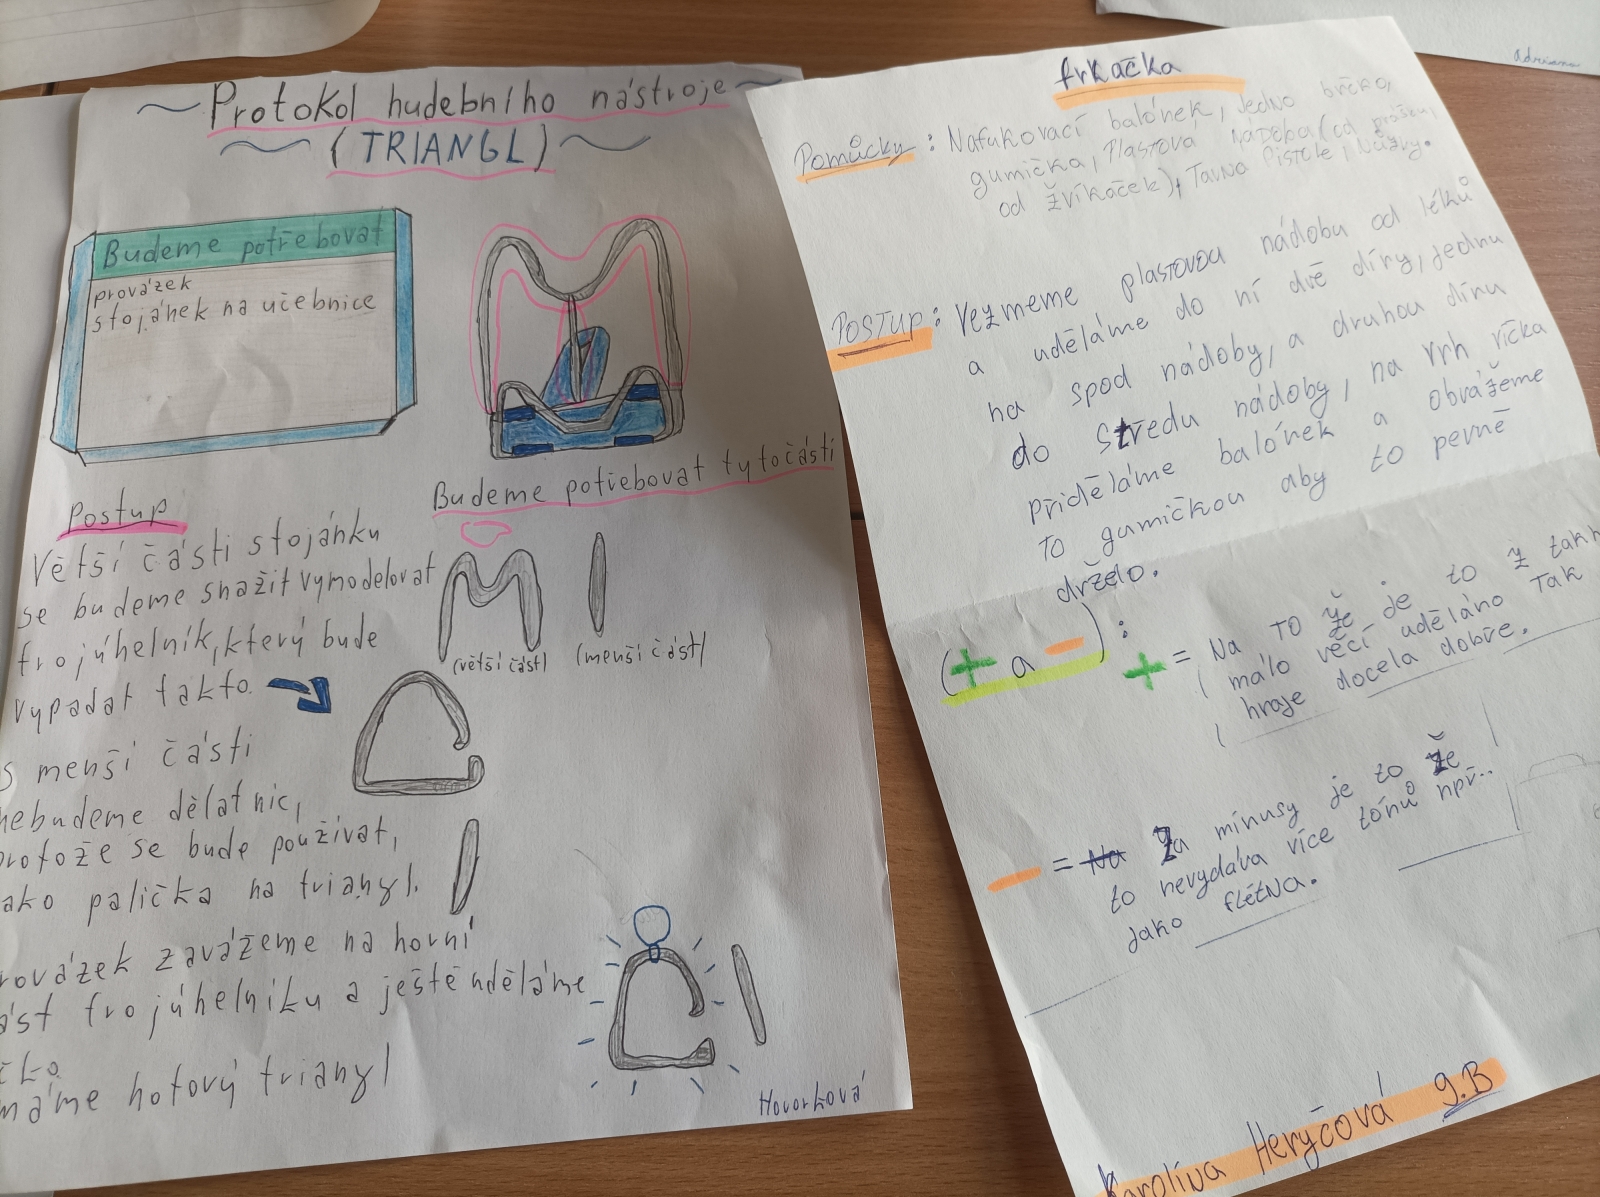 Protokol hudebního nástroje
(TRIANGL)
Budeme potřebovat
provázek
stojánek na učebnice
Budeme potřebovat tyto části
(větší část)
(menší část)
Postup
Větší části stojánku
se budeme snažit vymodelovat
trojúhelník, který bude
vypadat takto
s menší části
nebudeme dělat nic,
protože se bude používat,
jako palička na triangl.
rovázek zavážeme na horní
ást trojúhelníku a ještě uděláme
čko.
máme hotový triangl
Hovorková
adriana
frkačka
Pomůcky: Nafukovací balónek, jedno brčko,
gumička, Plastová nádoba (od prášku,
od žvíkaček), Tavna Pistole, Nůžky.
POSTUP: Vezmeme plastovou nádobu od léků
a uděláme do ní dvě díry, jednu
na spod nádoby, a druhou díru
do středu nádoby, na vrh víčka
přiděláme balónek a obvážeme
to gumičkou aby to pevně
drželo.
(+ a -):
+ = Na TO že je to z takh
málo věcí uděláno Tak
hraje docela dobře.
- = Na Za mínusy je to že
to nevydáva více tónů npř..
jako flétNa.
Karolína Heryčová 9.B